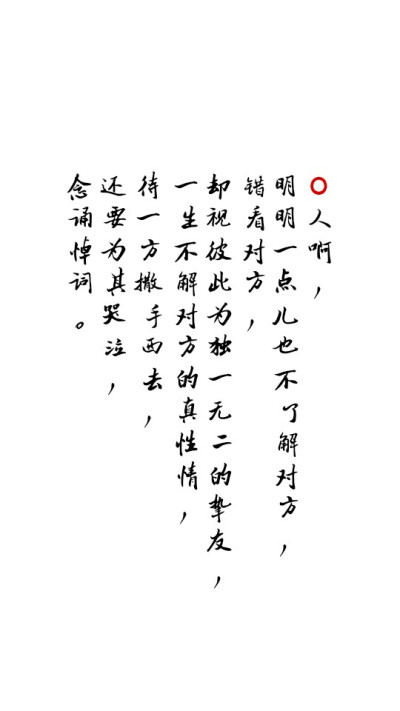 人啊，
明明一点儿也不了解对方，
错看对方，
却视彼此为独一无二的挚友，
一生不解对方的真性情，
待一方撒手西去，
还要为其哭泣，
念诵悼词。